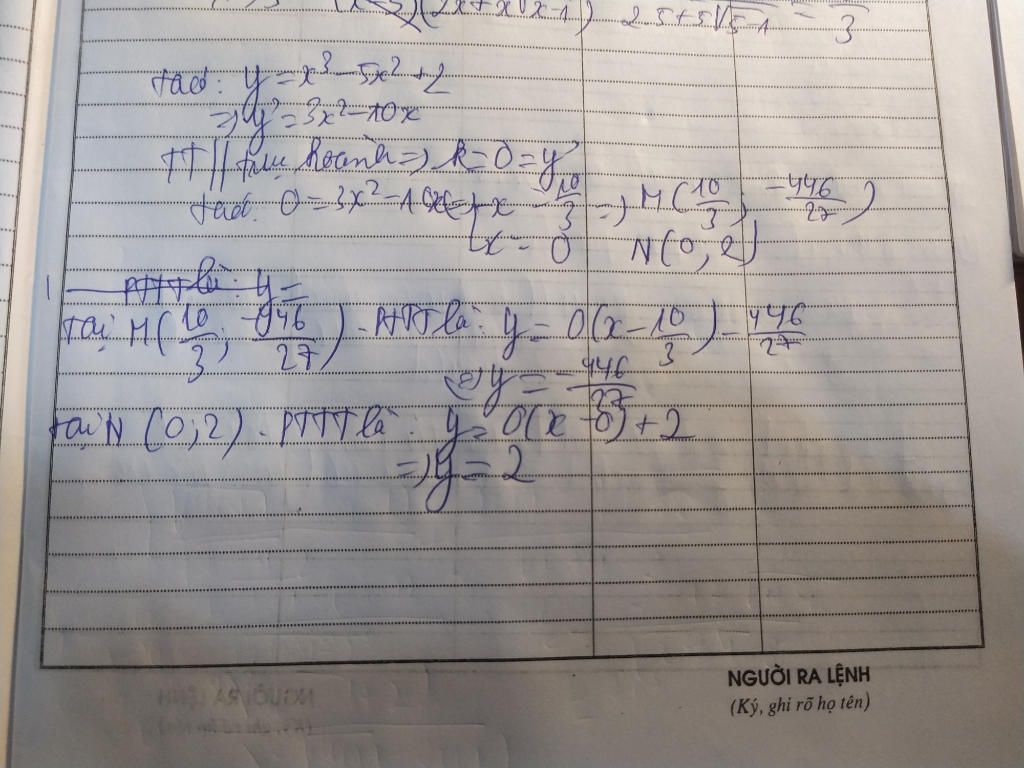 (x-5)(2x+x√x-1) 2.5+5√5-1 = 3
tacó: y = x³ - 5x² + 2
=> y' = 3x² - 10x
TT || trục hoành => k = 0 = y'
tacó: 0 = 3x² - 10x => [x = 10/3 => M(10/3; -446/27)
[x = 0 N(0; 2)
PTTT là: y =
Tại M(10/3; -446/27). PTTT là: y = 0(x - 10/3) - 446/27
<=> y = -446/27
tại N (0; 2). PTTT là: y = 0(x - 0) + 2
=> y = 2
NGƯỜI RA LỆNH
(Ký, ghi rõ họ tên)